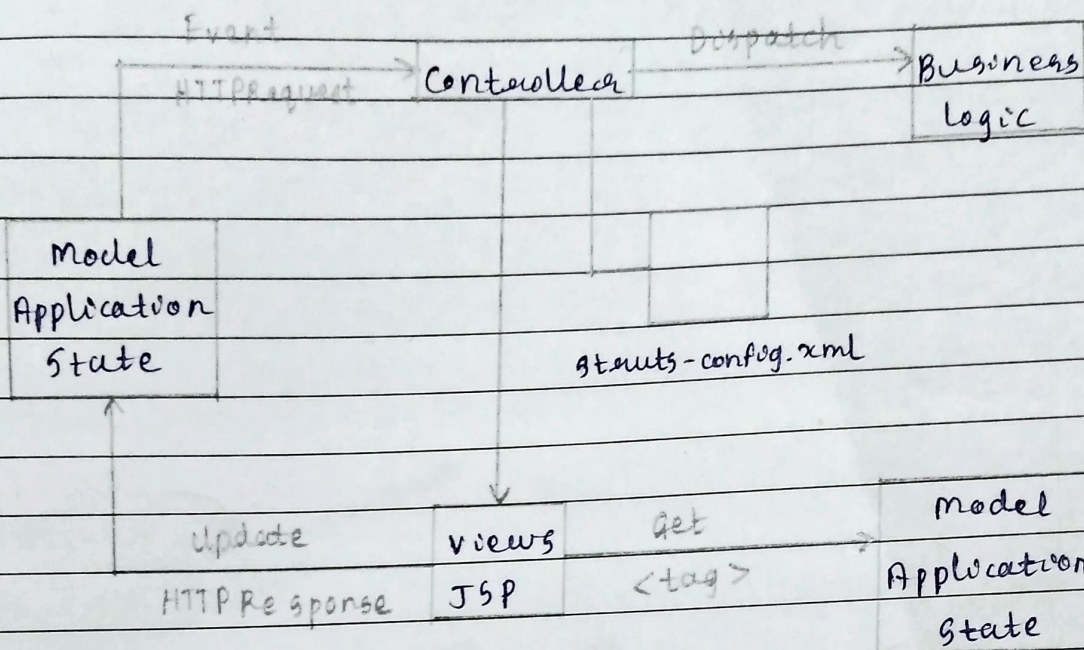 Event
Dispatch
HTTPRequest
Controller
Business
Logic
Model
Application
State
struts-config.xml
Update
HTTPResponse
views
JSP
Get
<tag>
Model
Application
State